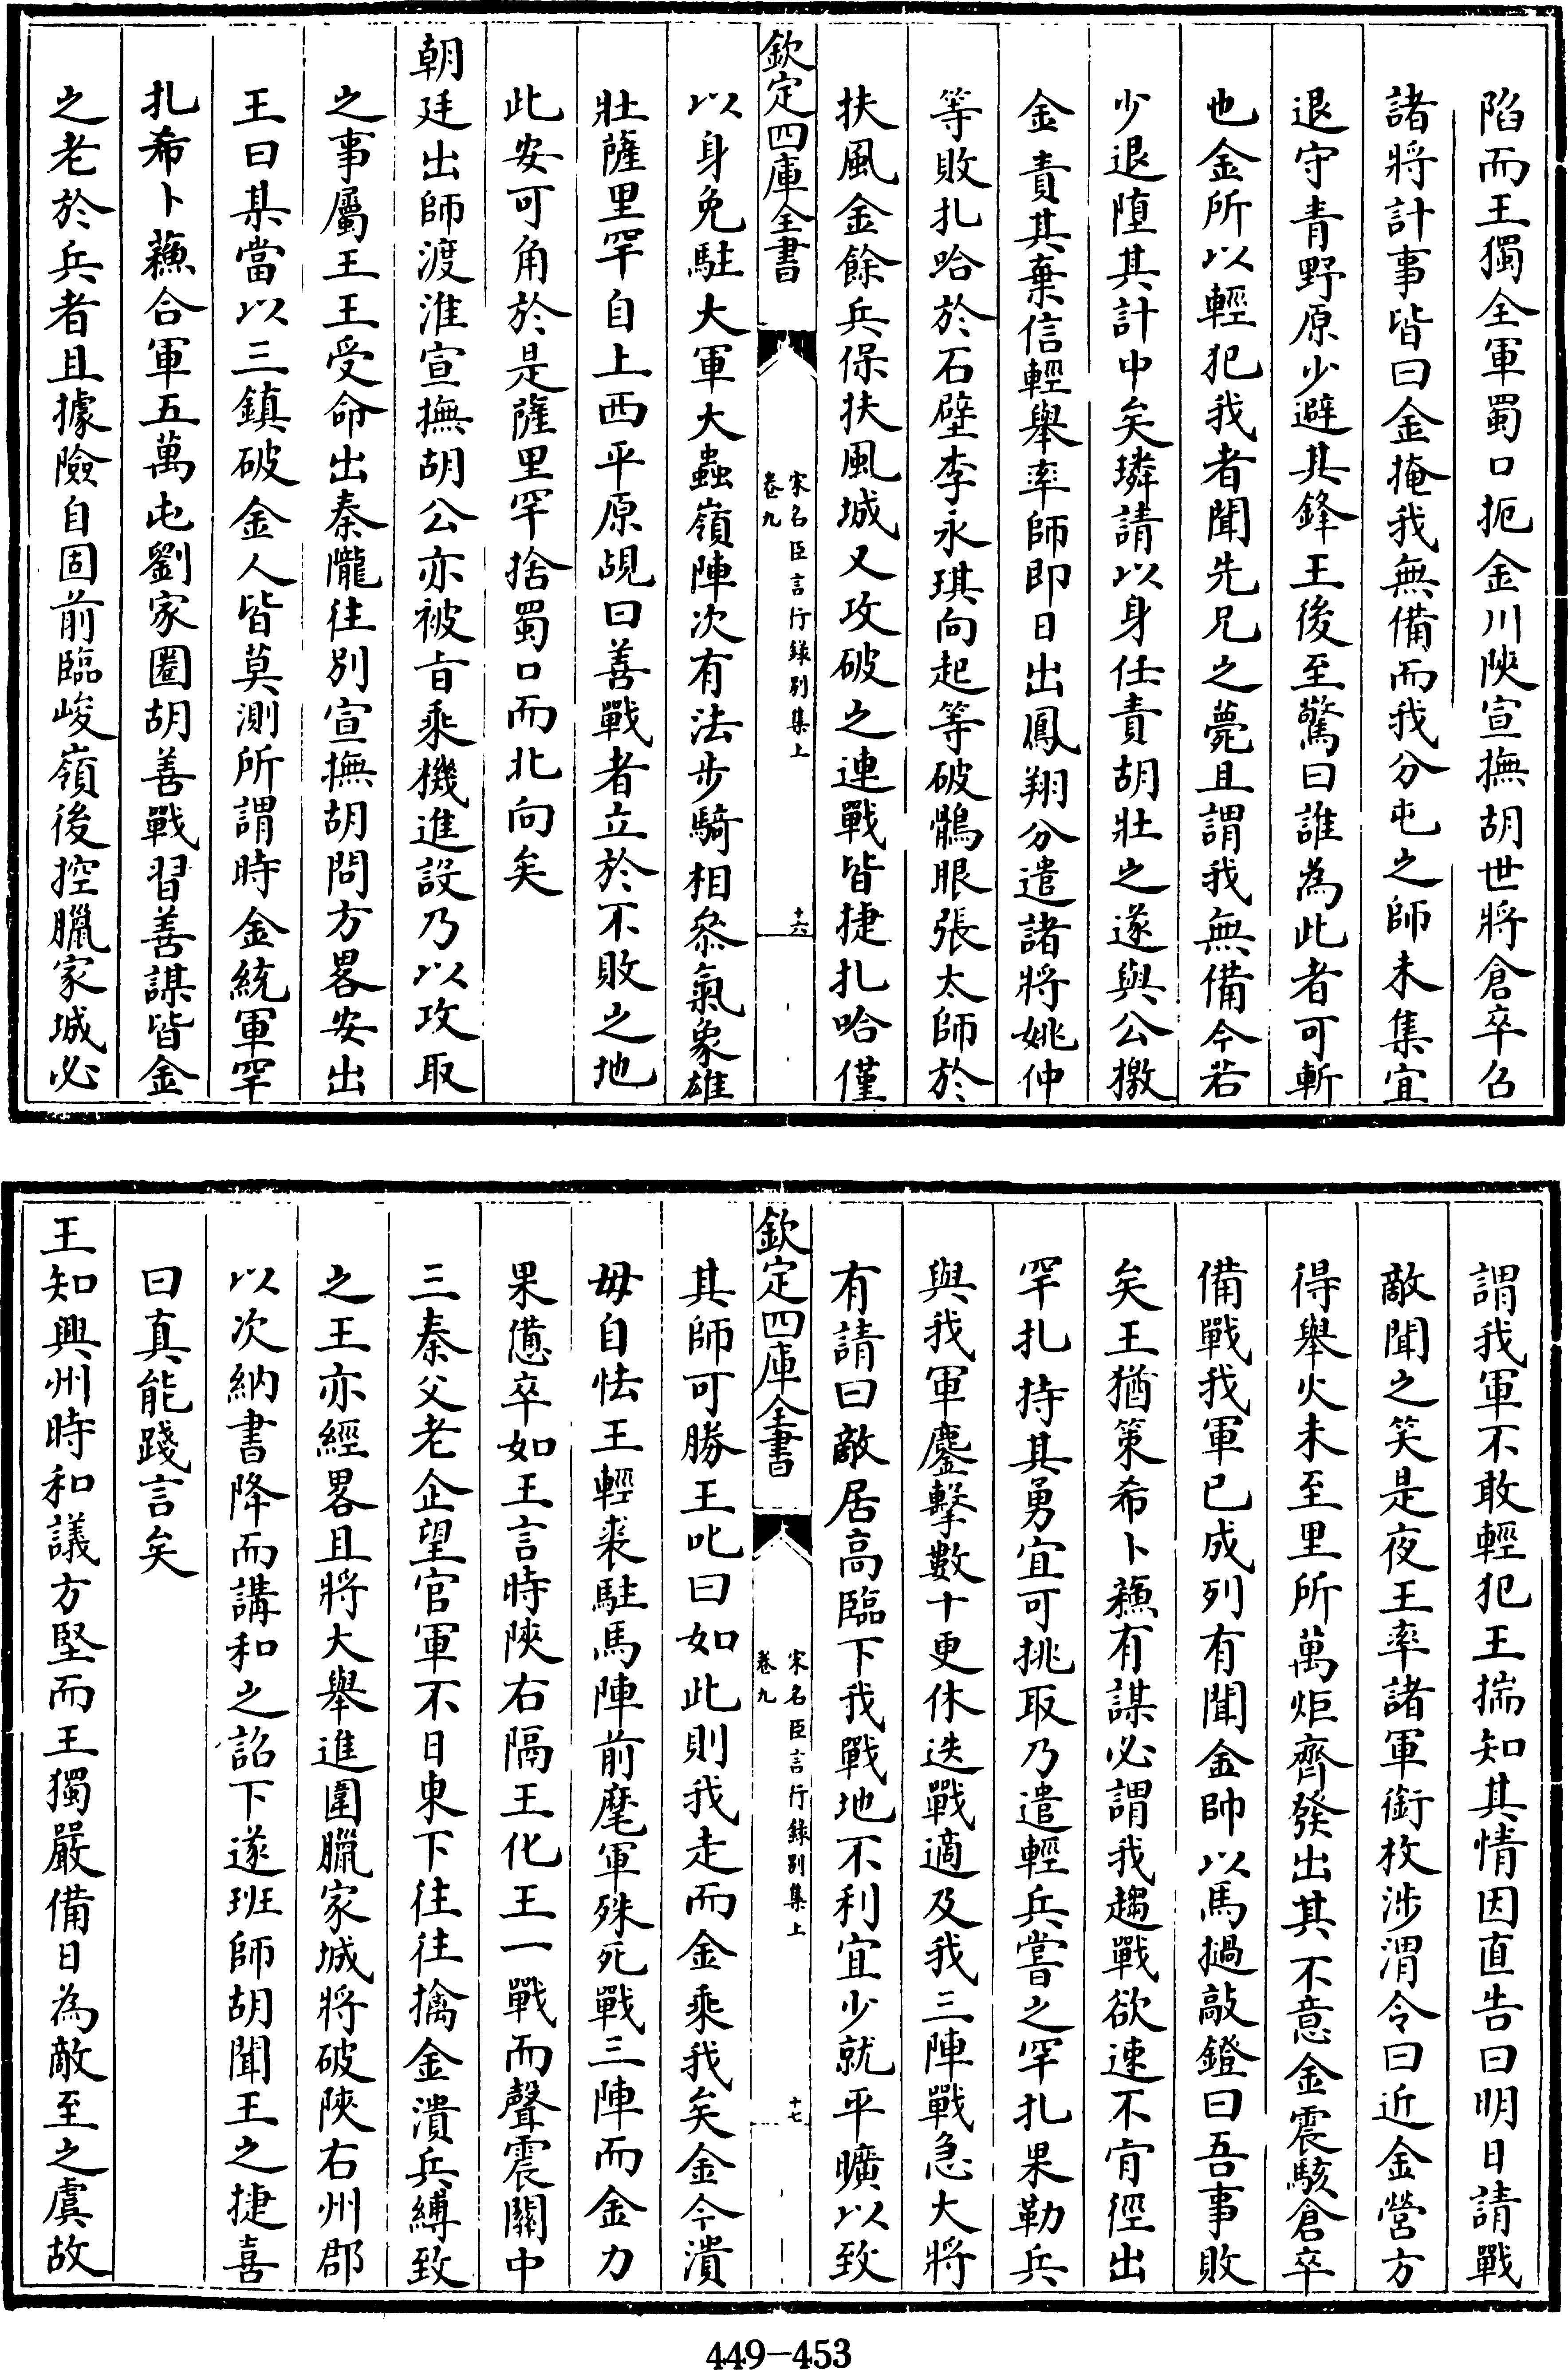 陷而王獨全軍蜀口扼金川陝宣撫胡世將倉卒召
諸將計事皆曰金掩我無備而我分屯之師未集宜
退守青野原少避其鋒王後至驚曰誰為此者可斬
也金所以輕犯我者聞先兄之薨且謂我無備今若
少退墮其計中矣璘請以身任責胡壯之遂與公檄
金責其棄信輕舉率師即日出鳳翔分遣諸將姚仲
等敗扎哈於石壁李永琪向起等破鶻眼張太師於
扶風金餘兵保扶風城又攻破之連戰皆捷扎哈僅
欽定四庫全書
宋名臣言行錄別集上
卷九
十六
以身免駐大軍大蟲嶺陣次有法步騎相叅氣象雄
壯薩里罕自上西平原覘曰善戰者立於不敗之地
此安可角於是薩里罕捨蜀口而北向矣
朝廷出師渡淮宣撫胡公亦被旨乘機進設乃以攻取
之事屬王王受命出秦隴往別宣撫胡問方畧安出
王曰某當以三鎮破金人皆莫測所謂時金統軍罕
扎希卜蘓合軍五萬屯劉家圈胡善戰習善謀皆金
之老於兵者且據險自固前臨峻嶺後控臘家城必
謂我軍不敢輕犯王揣知其情因直告曰明日請戰
敵聞之笑是夜王率諸軍銜枚涉渭令曰近金營方
得舉火未至里所萬炬齊發出其不意金震駭倉卒
備戰我軍已成列有聞金帥以馬撾敲鐙曰吾事敗
矣王猶策希卜蘓有謀必謂我趨戰欲速不肯徑出
罕扎持其勇宜可挑取乃遣輕兵嘗之罕扎果勒兵
與我軍鏖擊數十更休迭戰適及我三陣戰急大將
有請曰敵居高臨下我戰地不利宜少就平曠以致
欽定四庫全書
宋名臣言行錄別集上
卷九
十七
其師可勝王叱曰如此則我走而金乘我矣金今潰
毋自怯王輕裘駐馬陣前麾軍殊死戰三陣而金力
果憊卒如王言時陝右隔王化王一戰而聲震關中
三秦父老企望官軍不日東下往往擒金潰兵縛致
之王亦經畧且將大舉進圍臘家城將破陝右州郡
以次納書降而講和之詔下遂班師胡聞王之捷喜
曰真能踐言矣
王知興州時和議方堅而王獨嚴備日為敵至之虞故
449-453